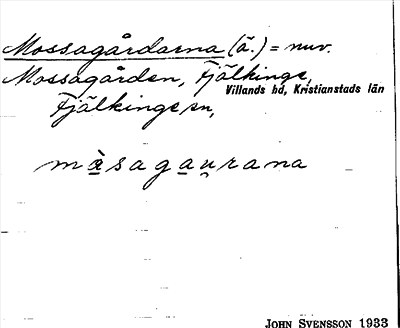 Mossagårdarna (ä.) = nuv.
Mossagården, Fjälkinge,
Villands hd, Kristianstads län
Fjälkinge sn,
mà̱saga̱u̯rana
JOHN SVENSSON 1933